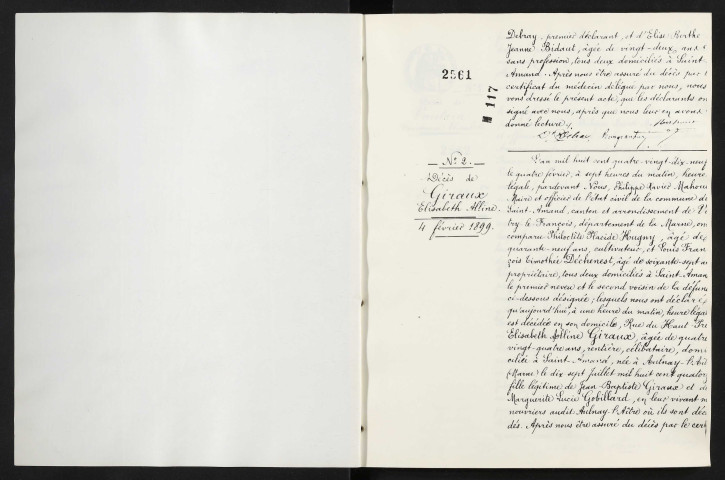 Debray, premier déclarant, et d'Elise Berthe
Jeanne Bidaut, âgée de vingt-deux ans
sans profession, tous deux domiciliés à Saint
Amand. Après nous être assuré du décès par
certificat du médecin délégué par nous, nous
vons dressé le présent acte, que les déclarants on
signé avec nous, après que nous leur en avons
donné lecture.
2561
M 117
N° 2.
Décès de
Giraux
Elisabeth Alline.
4 février 1899.
L'an mil huit cent quatre-vingt-dix-neuf
le quatre février, à sept heures du matin, heure
légale, pardevant Nous, Philippe Xavier Mahou
Maire et officier de l'état civil de la commune de
Saint-Amand, canton et arrondissement de Vi
try-le-François, département de la Marne, on
comparu Philoclète Placide Hougny, âgé de
quarante-neuf ans, cultivateur, et Louis Fran
çois Timothée Déchenest, âgé de soixante-sept an
propriétaire, tous deux domiciliés à Saint-Aman
le premier neveu et le second voisin de la défun
ci-dessous désignée; lesquels nous ont déclaré
qu'aujourd'hui, à une heure du matin, heure légal
est décédée en son domicile, Rue du Haut
Elisabeth Alline Giraux, âgée de quatre
vingt-quatre ans, rentière, célibataire, domi
ciliée à Saint-Amand, née à Aulnay-l'Aî
(Marne) le dix sept Juillet mil huit cent quator
fille légitime de Jean-Baptiste Giraux et de
Marguerite Lucie Gobillard, en leur vivant m
nouvriers audit Aulnay-l'Aître où ils sont décé
dés. Après nous être assuré du décès par le cert